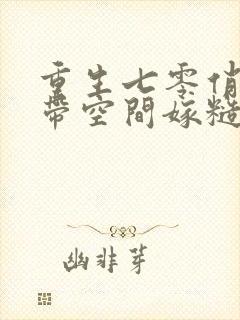 重生七零俏
带空間嫁糙
幽非芽